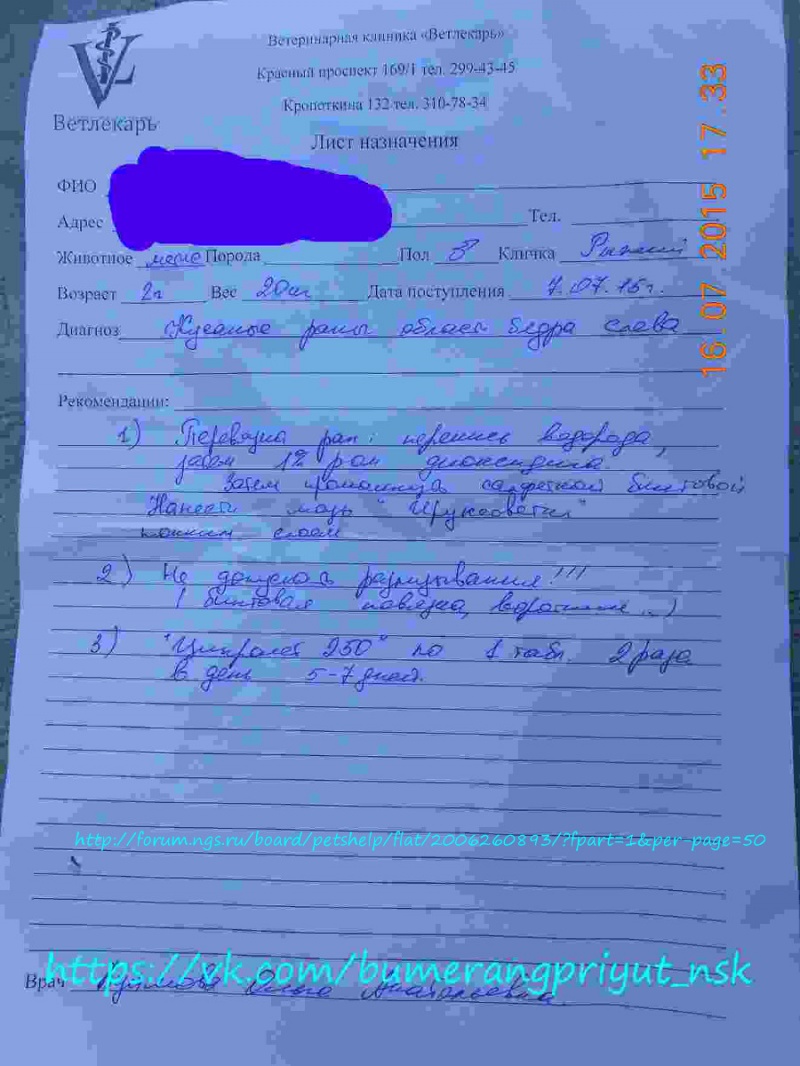 Ветеринарная клиника «Ветлекарь»
Красный проспект 169/1 тел. 299-43-45
Кропоткина 132 тел. 310-78-34
Ветлекарь
Лист назначения
16.07.2015 17:33
ФИО
Адрес Тел.
Животное Порода Пол Кличка Рыжий
Возраст 2г Вес 20кг Дата поступления 7.07.15г.
Диагноз Кусаные раны област бедра слева
Рекомендации:
1) Перевязки ран: перекись водорода,
затем 1% р-ом диоксидина.
Затем салфеткой бинтовой
Нанести мазь
тонким слоем
2) Не допускать разлизывания!!!
(бинтовая повязка, воротник..)
3) "Ципролет 250" по 1 табл. 2 раза
в день 5-7 дней.
http://forum.ngs.ru/board/petshelp/flat/2006260893/?fpart=1&per-page=50
https://vk.com/bumerangpriyut_nsk
Врач Ольга Анатольевна